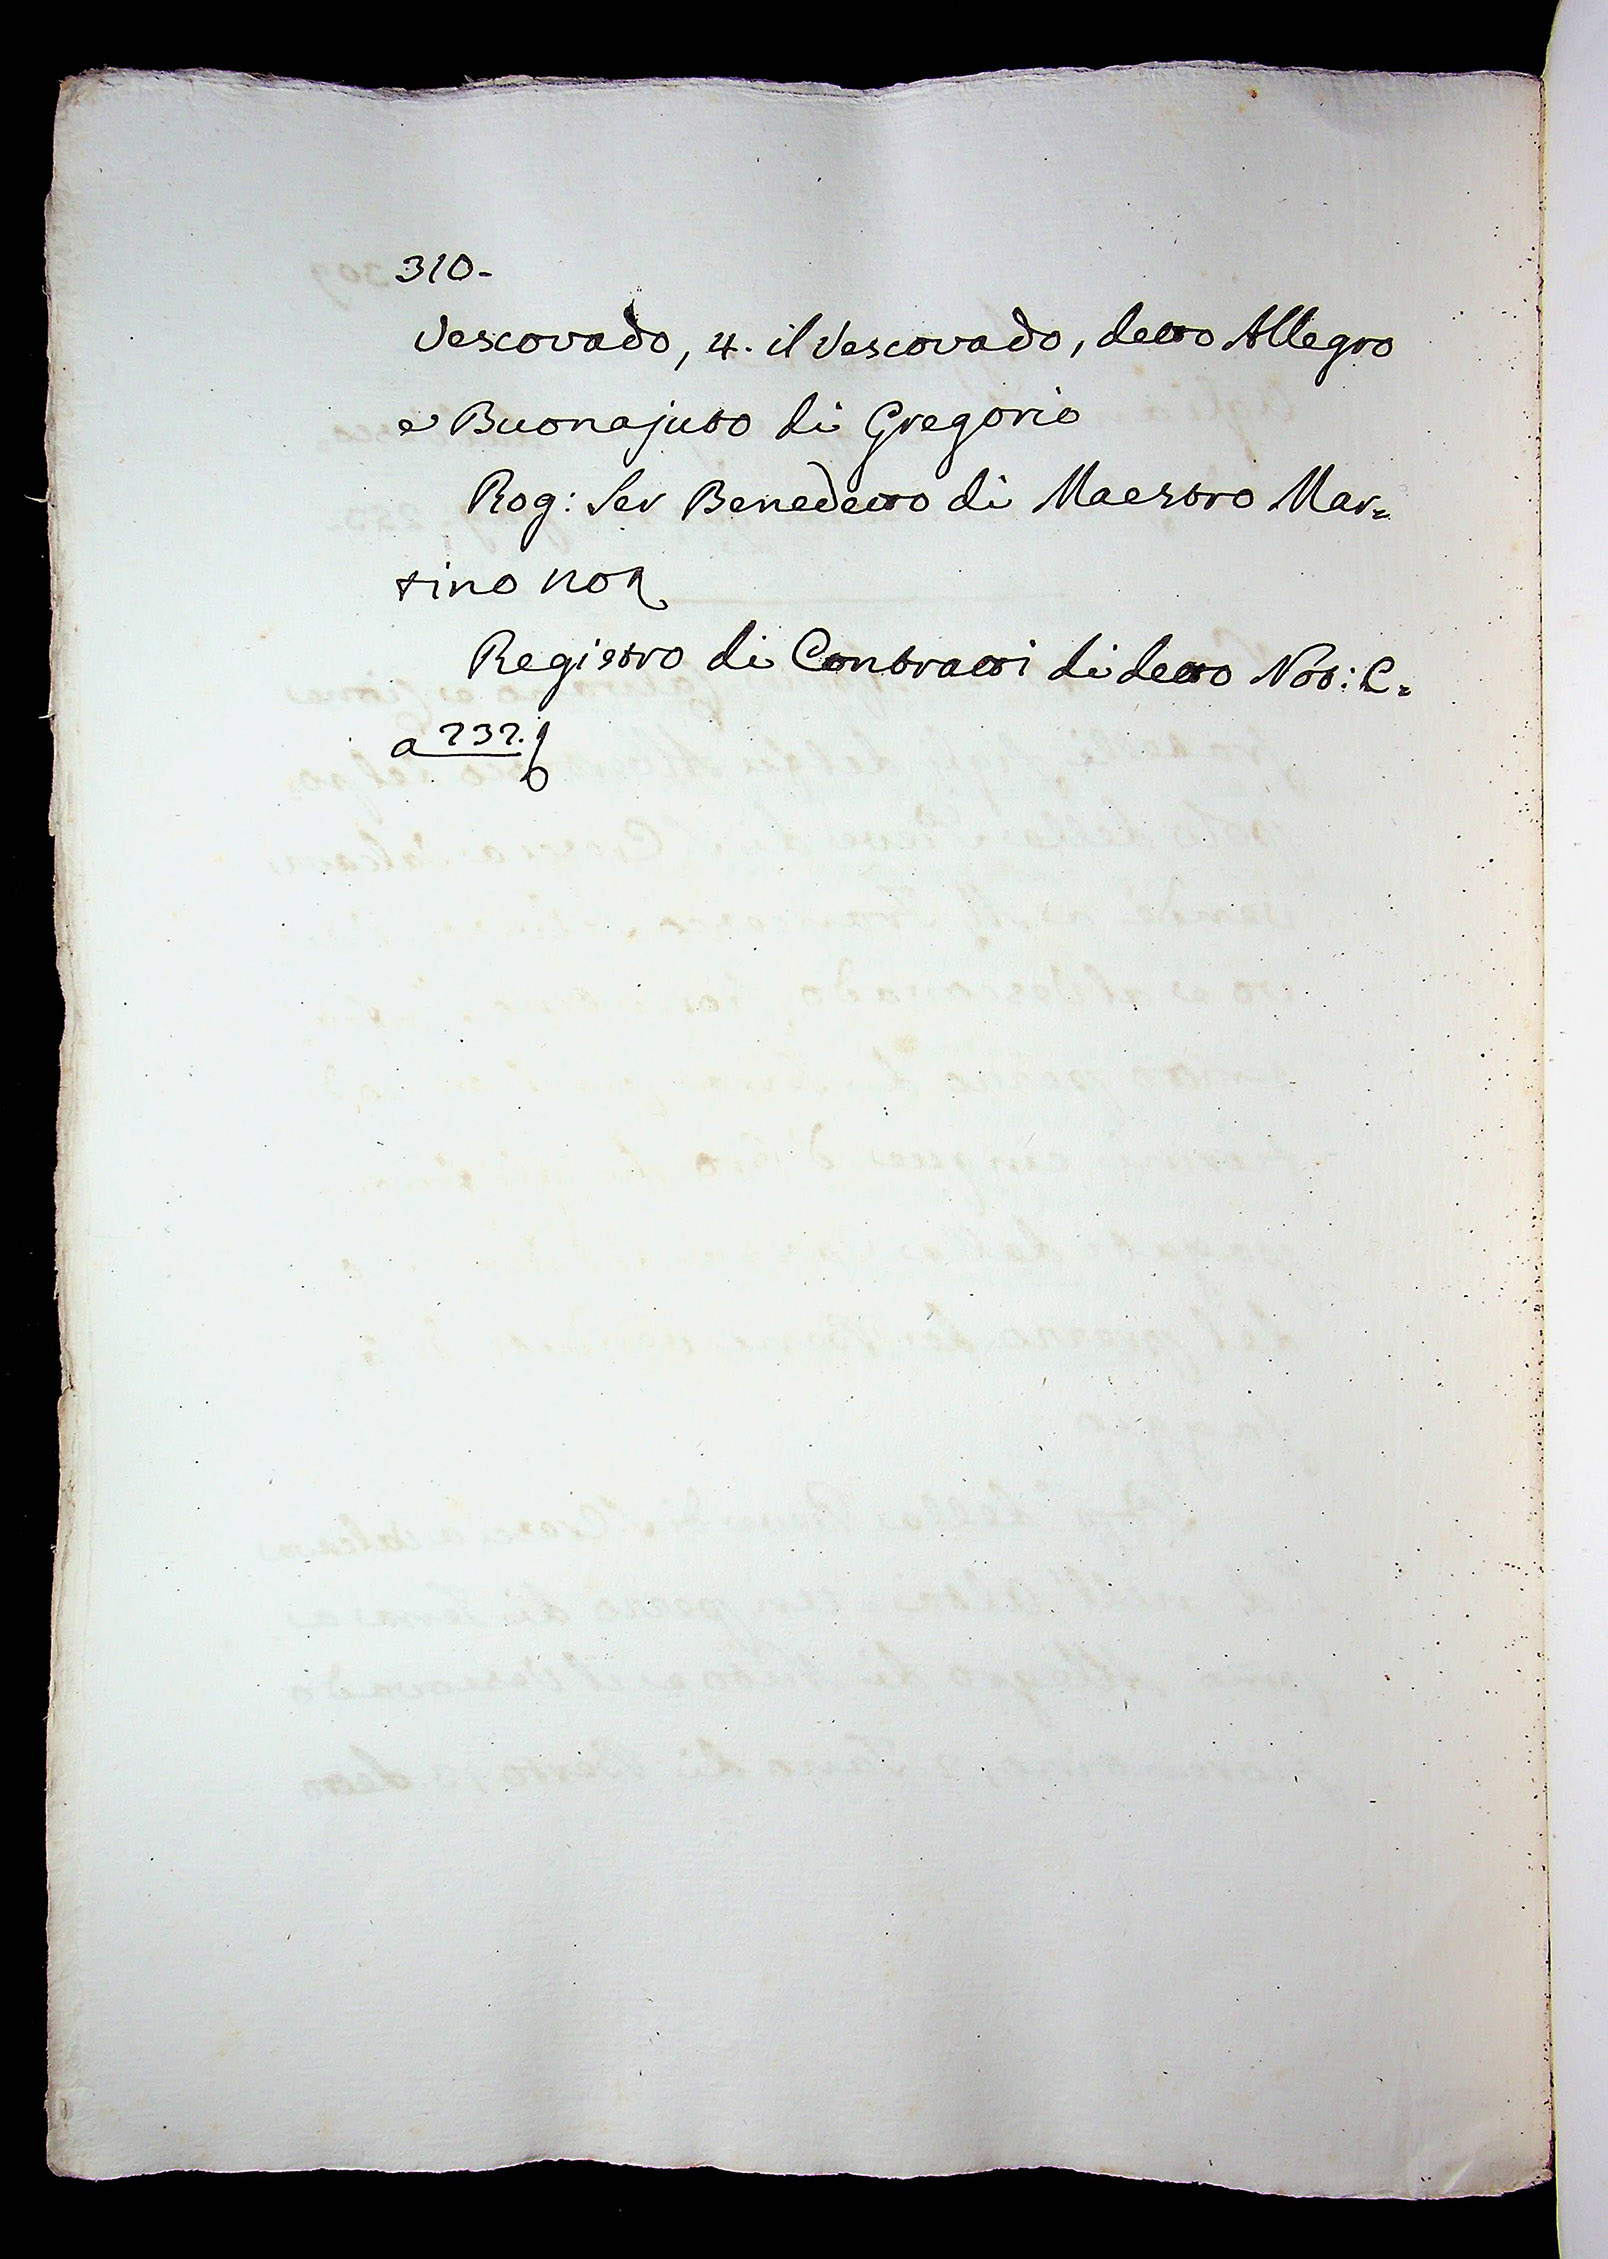 310-
Vescovado, 4. il Vescovado, detto Allegro
e Buonajuto di Gregorio
Rog: Ser Benedetto di Maestro Mar=
tino Not
Registro di Contratti di detto Not: C=
a 232.